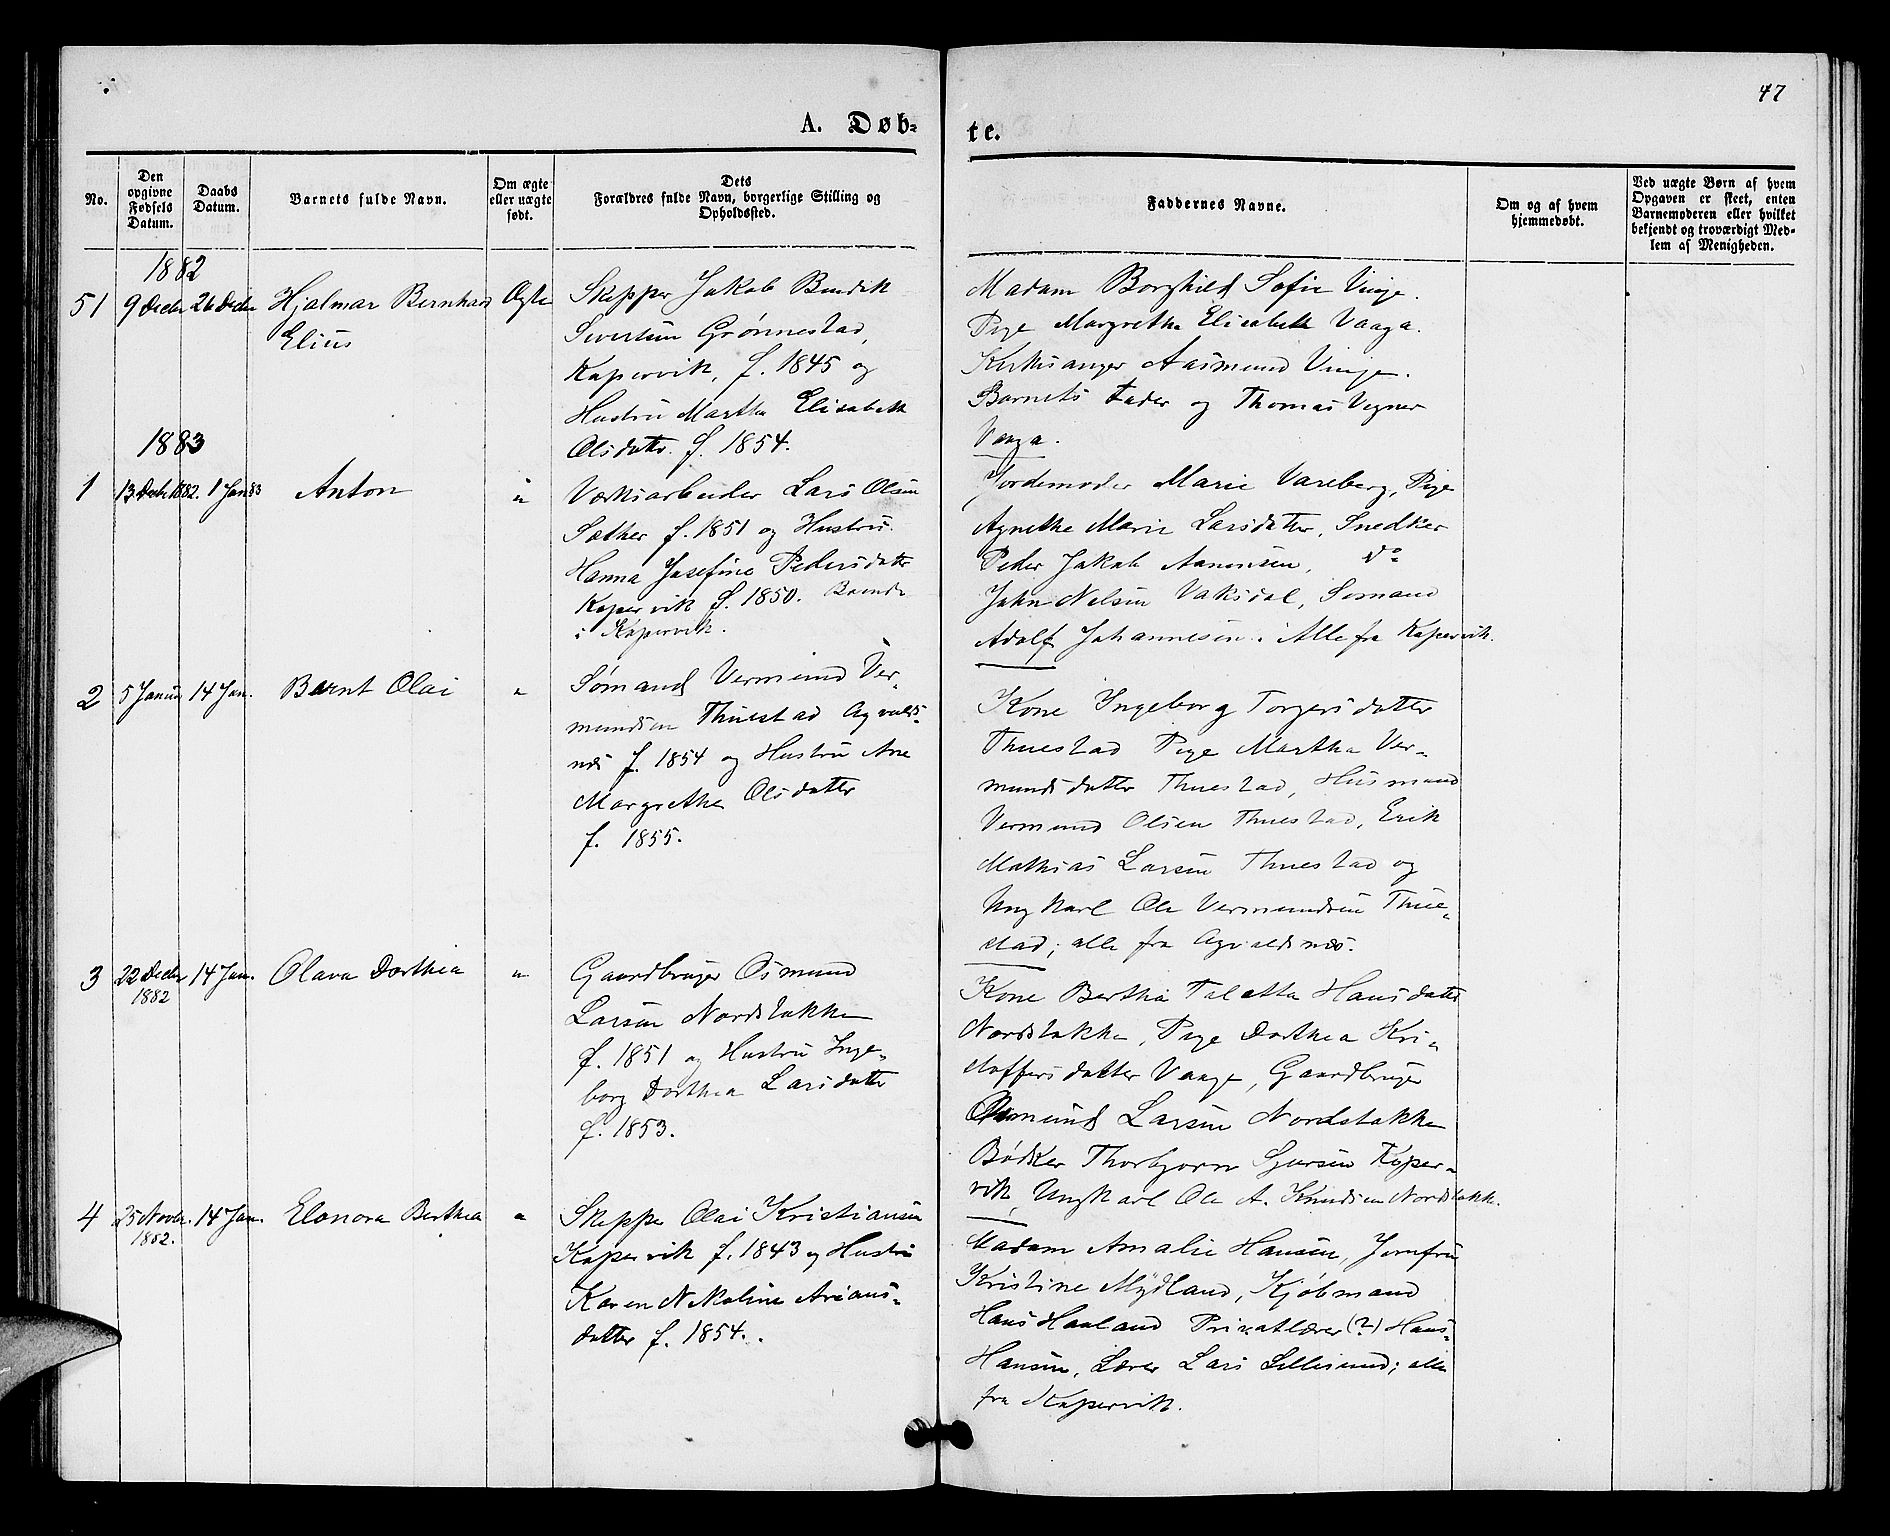 47
A. Døb-
te.
No.
Den
opgivne
Fødsels
Datum.
Daabs
Datum.
Barnets fulde Navn.
Om ægte
eller uægte
født.
Dets
Forældres fulde Navn, borgerlige Stilling og
Opholdssted.
Faddernes Navne.
Om og af hvem
hjemmedøbt.
Ved uægte Børn af hvem
Opgaven er skeet, enten
Barnemoderen eller hvilket
bekjendt og troværdigt Med-
lem af Menigheden.
1882
51 9 Decbr 26 Decbr Hjalmar Bernhard Ægte
Elius
Skipper Jakob Bendik
Sivertsen Grønnestad,
Kopervik, f. 1845 og
Hustru Martha Elisabeth
Olsdatter f. 1854.
Madam Borghild Sofie Vinje.
Pige Margrethe Elisabeth Vaaga.
Kirkesanger Aasmund Vinje.
Barnets Fader og Thomas Vegner
Vaaga.
1883
1 13 Decbr 1882. 1 Jan 83 Anton "
Værksarbeider Lars Olsen
Sæther f. 1851 og Hustru
Hanna Josefine Pedersdatter
Kopervik f. 1850. Boende
i Kopervik.
Jordemoder Marie Vareberg, Pige
Agnethe Marie Larsdatter, Snedker
Peder Jakob Aanensen, do
John Nelsen Vaksdal, Sømand
Adolf Johannesen. Alle fra Kopervik.
2 5 Januar 14 Jan. Bernt Olai "
Sømand Vermund Ver-
mundsen Thuestad Agvalds-
næs f. 1854 og Hustru Ane
Margrethe Olsdatter
f. 1855.
Kone Ingeborg Torgersdatter
Thuestad Pige Martha Ver-
mundsdatter Thuestad, Husmand
Vermund Olsen Thuestad, Erik
Mathias Larsen Thuestad og
Ungkarl Ole Vermundsen Thue-
stad; alle fra Agvaldsnæs.
3 22 Decbr 14 Jan. Olava Dorthea "
1882
Gaardbruger Osmund
Larsen Nordstokke
f. 1851 og Hustru Inge-
borg Dorthea Larsdatter
f. 1853.
Kone Bertha Taletta Hansdatter
Nordstokke, Pige Dorthea Kri-
stoffersdatter Vaage, Gaardbruger
Osmund Larsen Nordstokke
Bødker Thorbjørn Sjursen Koper-
vik, Ungkarl Ole A. Knudsen Nordstokke.
4 25 Novbr. 14 Jan. Elonora Berthea "
1882.
Skipper Olai Kristiansen
Kopervik f. 1843 og Hustru
Karen Nikoline Arians-
datter f. 1854.
Madam Amalie Hansen, Jomfru
Kristine Mydland, Kjøbmand
Hans Haaland Privatlærer (?) Hans
Hansen, Lærer Lars Lillesund; alle
fra Kopervik.